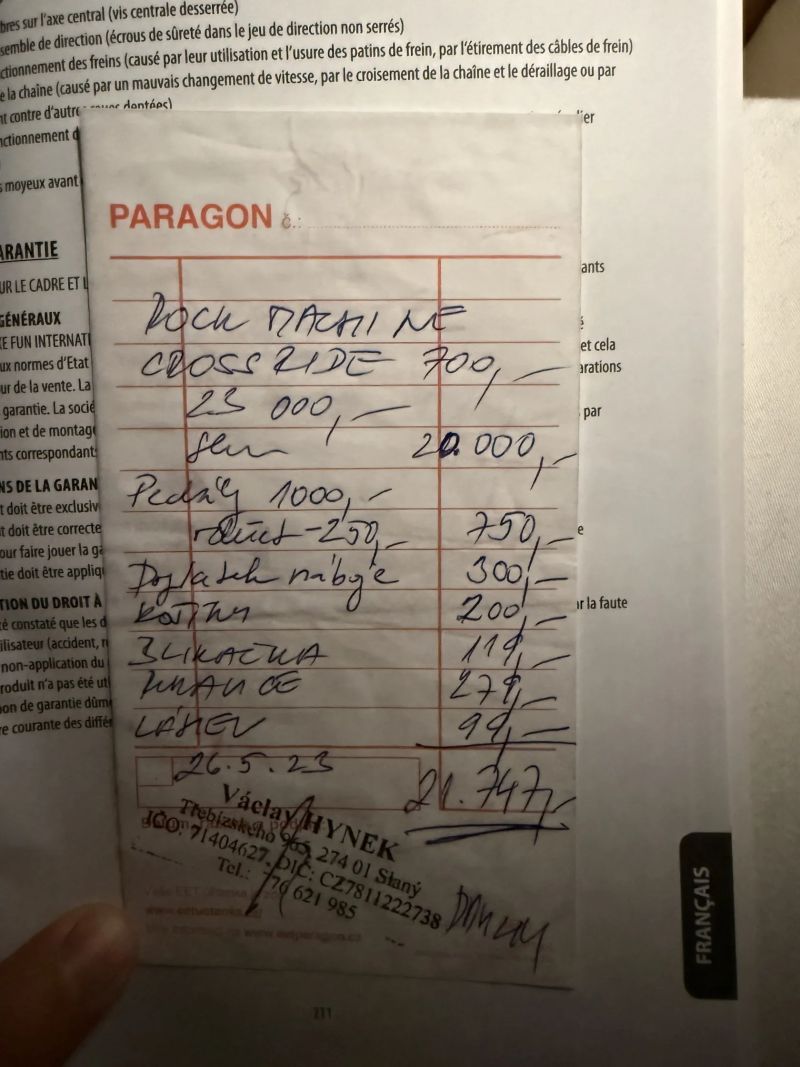 bres sur l'axe central (vis centrale desserrée)
semble de direction (écrous de sûreté dans le jeu de direction non serrés)
ctionnement des freins (causé par leur utilisation et l'usure des patins de frein, par l'étirement des câbles de frein)
e la chaîne (causée par un mauvais changement de vitesse, par le croisement de la chaîne et le déraillage ou par
nt contre d'autres roues dentées)
ier
nctionnement d
s moyeux avant
PARAGON č.:
ARANTIE
ants
UR LE CADRE ET L
GÉNÉRAUX
KE FUN INTERNATI
et cela
ux normes d'Etat
arations
ur de la vente. La
garantie. La socié
par
ion et de montag
nts correspondant
NS DE LA GARAN
t doit être exclusiv
t doit être correcte
e
our faire jouer la ga
tie doit être appliq
TION DU DROIT À
r la faute
té constaté que les d
ilisateur (accident, n
non-application du
roduit n'a pas été ut
on de garantie dûm
re courante des diffé
ROCK MACHINE
CROSSRIDE 700,—
23 000,—
20.000,—
Pedály 1000,—
-250,— 750,—
Doplatek náboje 300,—
200,—
BLIKAČKA 119,—
279,—
LÁHEV 99,—
26.5.23
21.747,—
Václav HYNEK
Třebízského 965, 274 01 Slaný
IČO: 71404627, DIČ: CZ7811222738
Tel.: 776 621 985
211
FRANÇAIS